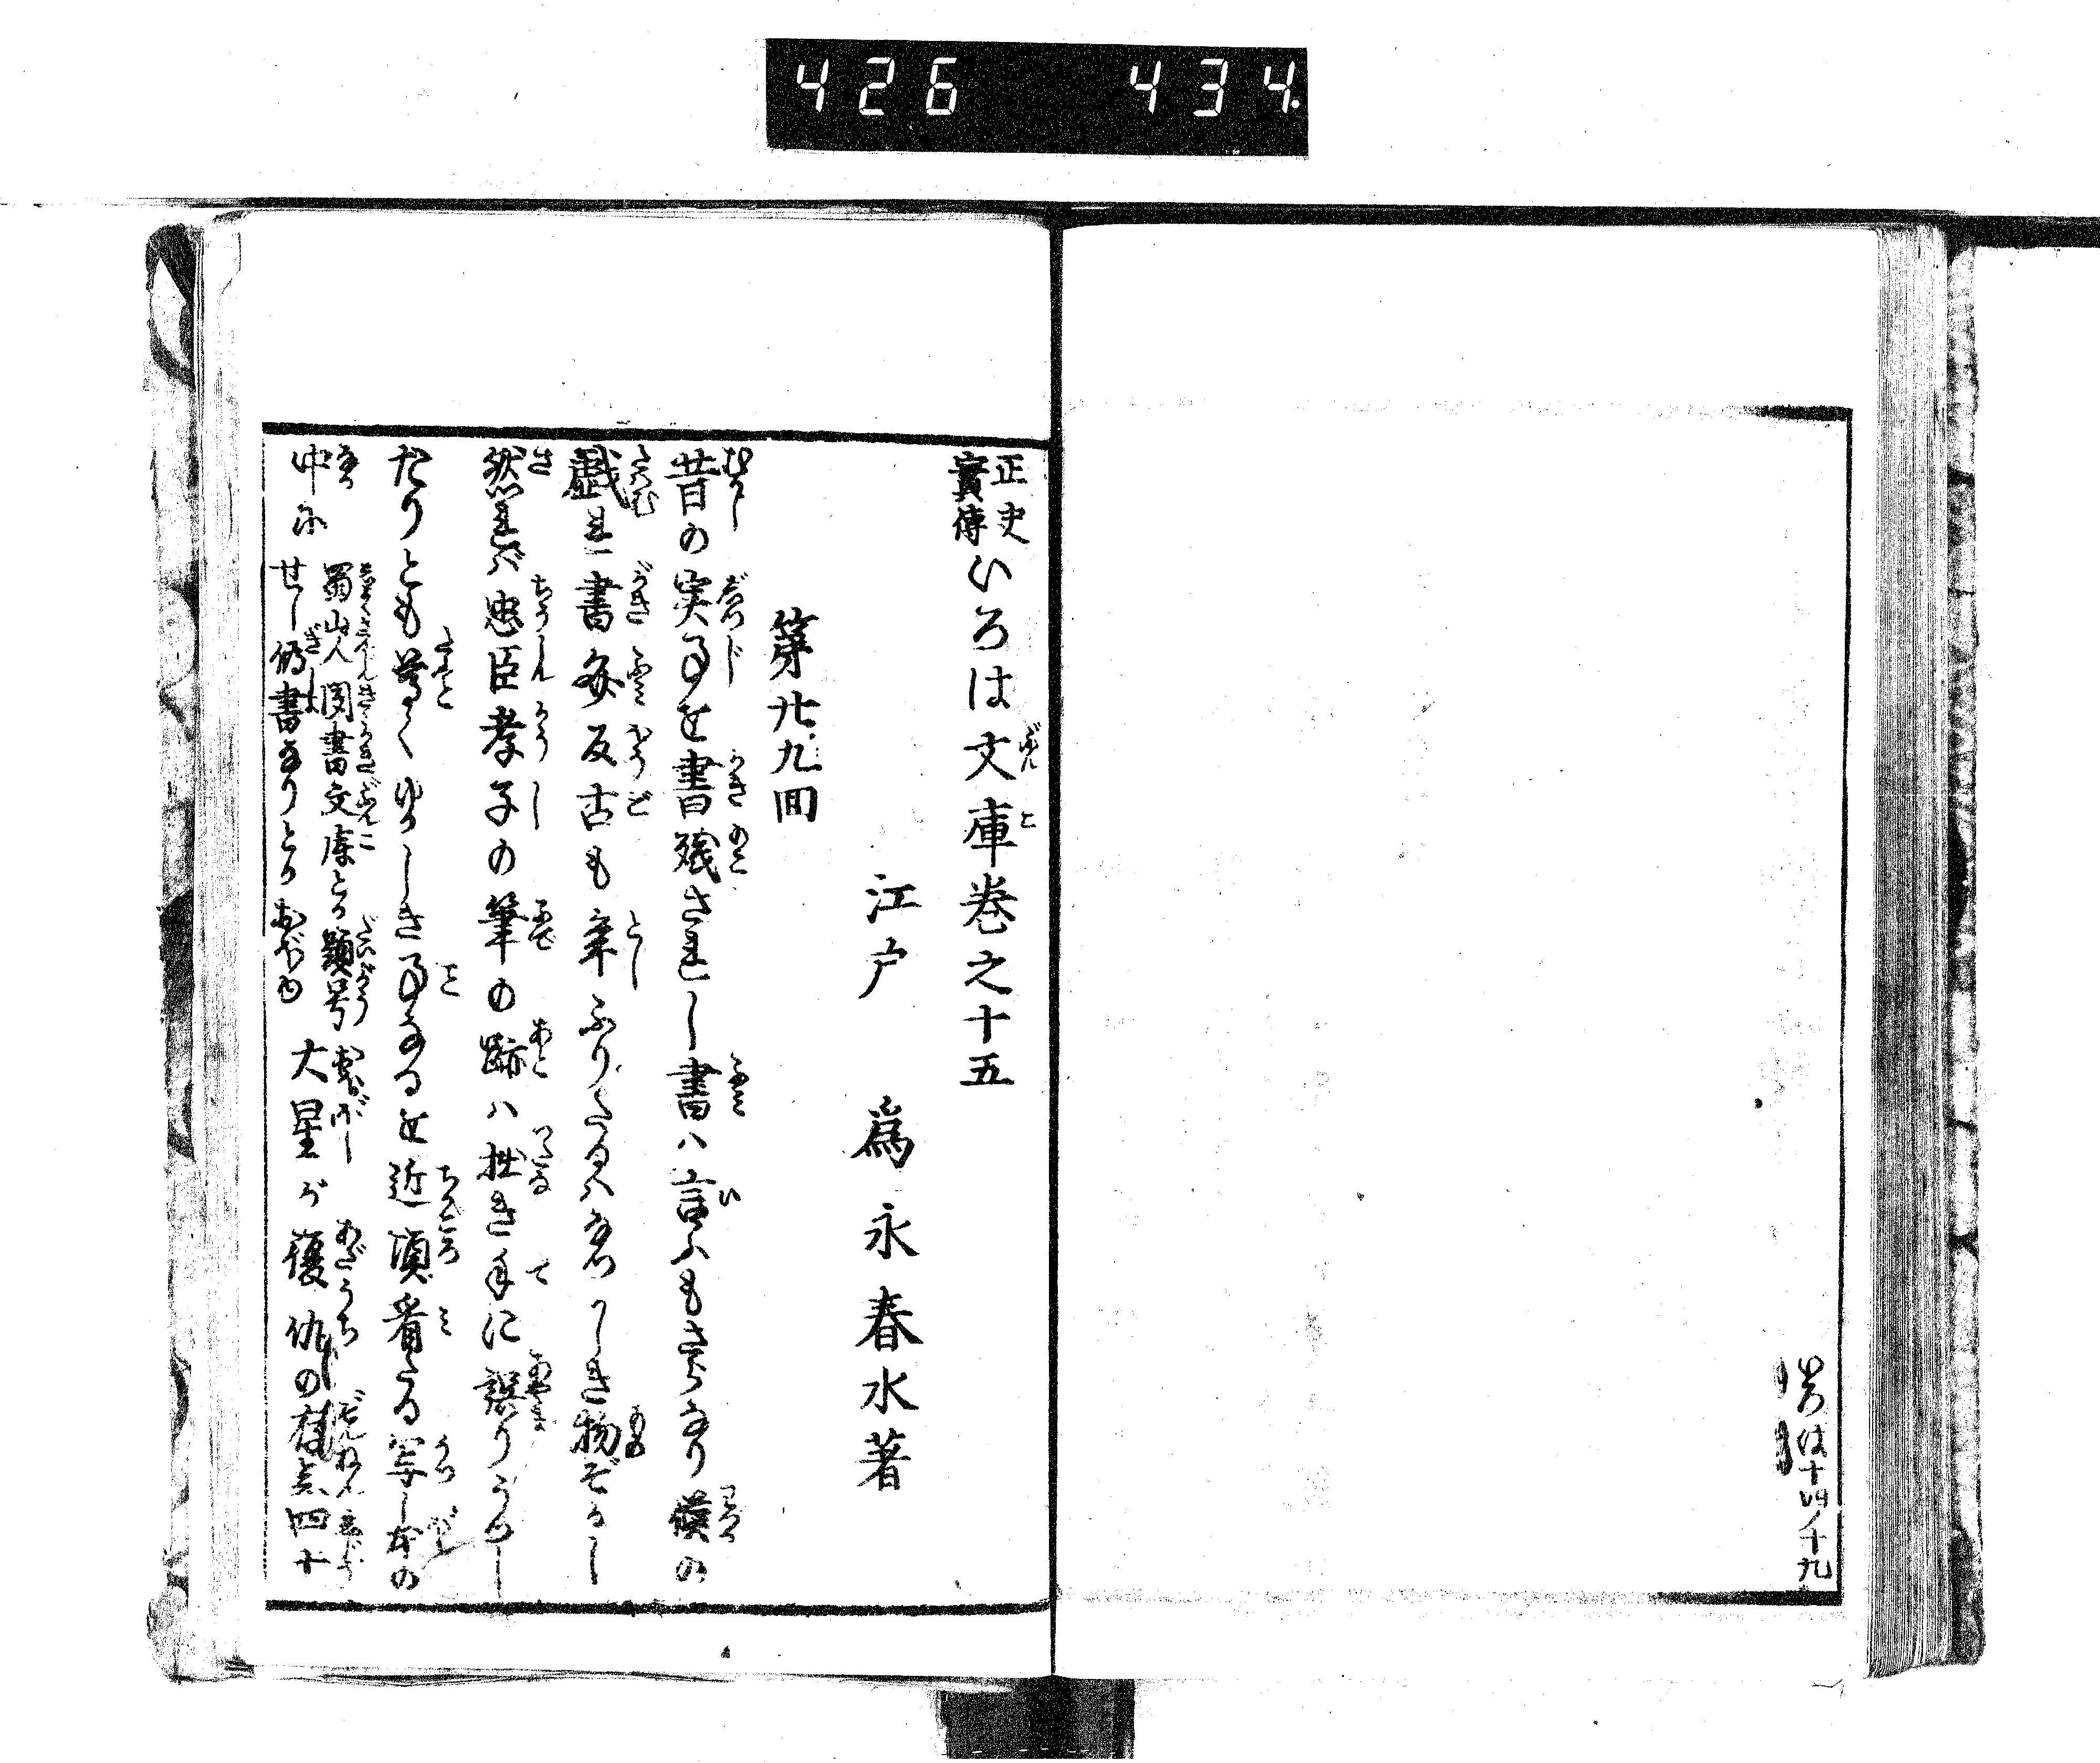 426 434
いろは十四ノ十九
正史實傳いろは文庫巻之十五
江戸 為永春水著
第廿九回
昔の実事を書残されし書ハ言ふもさらなり僕の
戯れ書文反古も年ふりたるハなつかしき物ぞかし
然れバ忠臣孝子の筆の跡ハ拙き手に誤りうつし
たりとも尊くゆかしき事なるを近頃看たる写し本の
中に
蜀山人聞書文庫とか題号
せし偽書なりとかおぼゆ
大星が復仇の存念四十